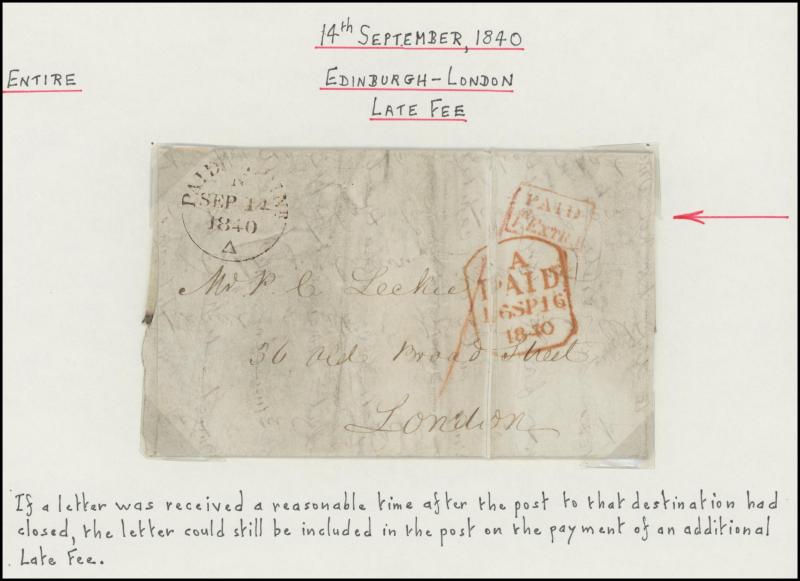 14th SEPTEMBER, 1840
ENTIRE
EDINBURGH – LONDON
LATE FEE
PAID
SEP 14
1840
PAID
EXTRA
A
PAID
16SP16
1840
Mr P C Leckie
36 Old Broad Street
London
If a letter was received a reasonable time after the post to that destination had
closed, the letter could still be included in the post on the payment of an additional
Late Fee.